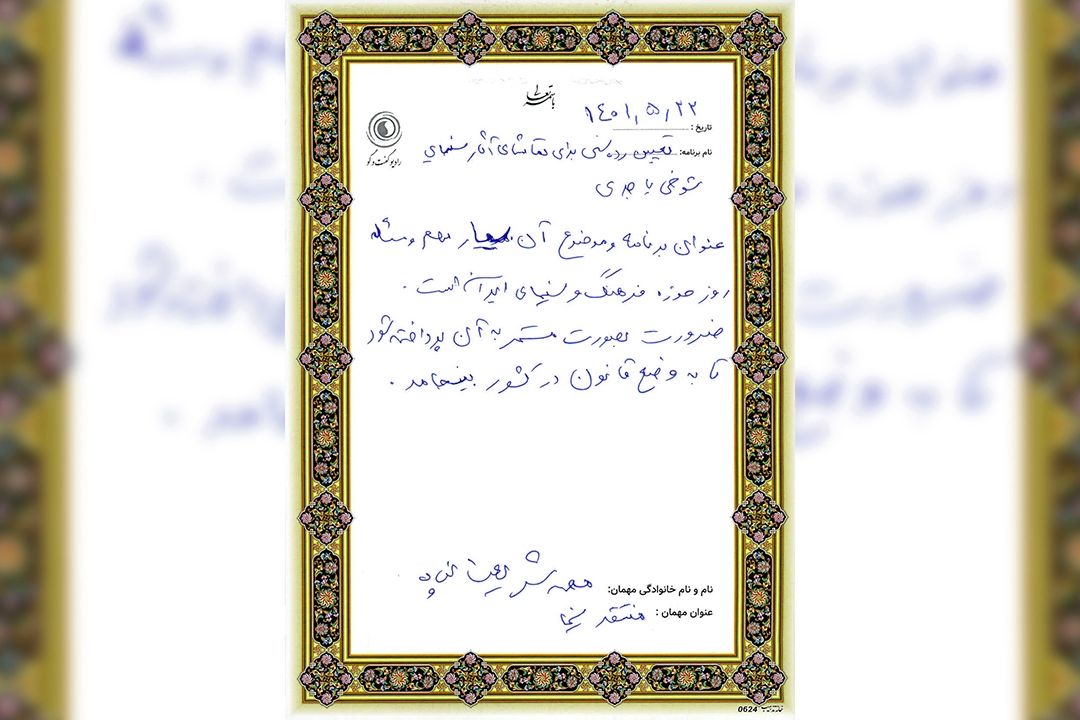 باسمه تعالی
تاریخ: ۱۴۰۱/۵/۲۲
رادیو گفت و گو
نام برنامه: تعیین رده سنی برای تماشای آثار سینمای
شوخی یا جدی
عنوان برنامه و موضوع آن بسیار مهم و مسئله
روز حوزه فرهنگ و سینمای ایران است.
ضرورت بصورت مستمر به آن پرداخته شود
تا به وضع قانون در کشور بینجامد.
نام و نام خانوادگی مهمان: شریعت پناه
عنوان مهمان: منتقد سینما
0624